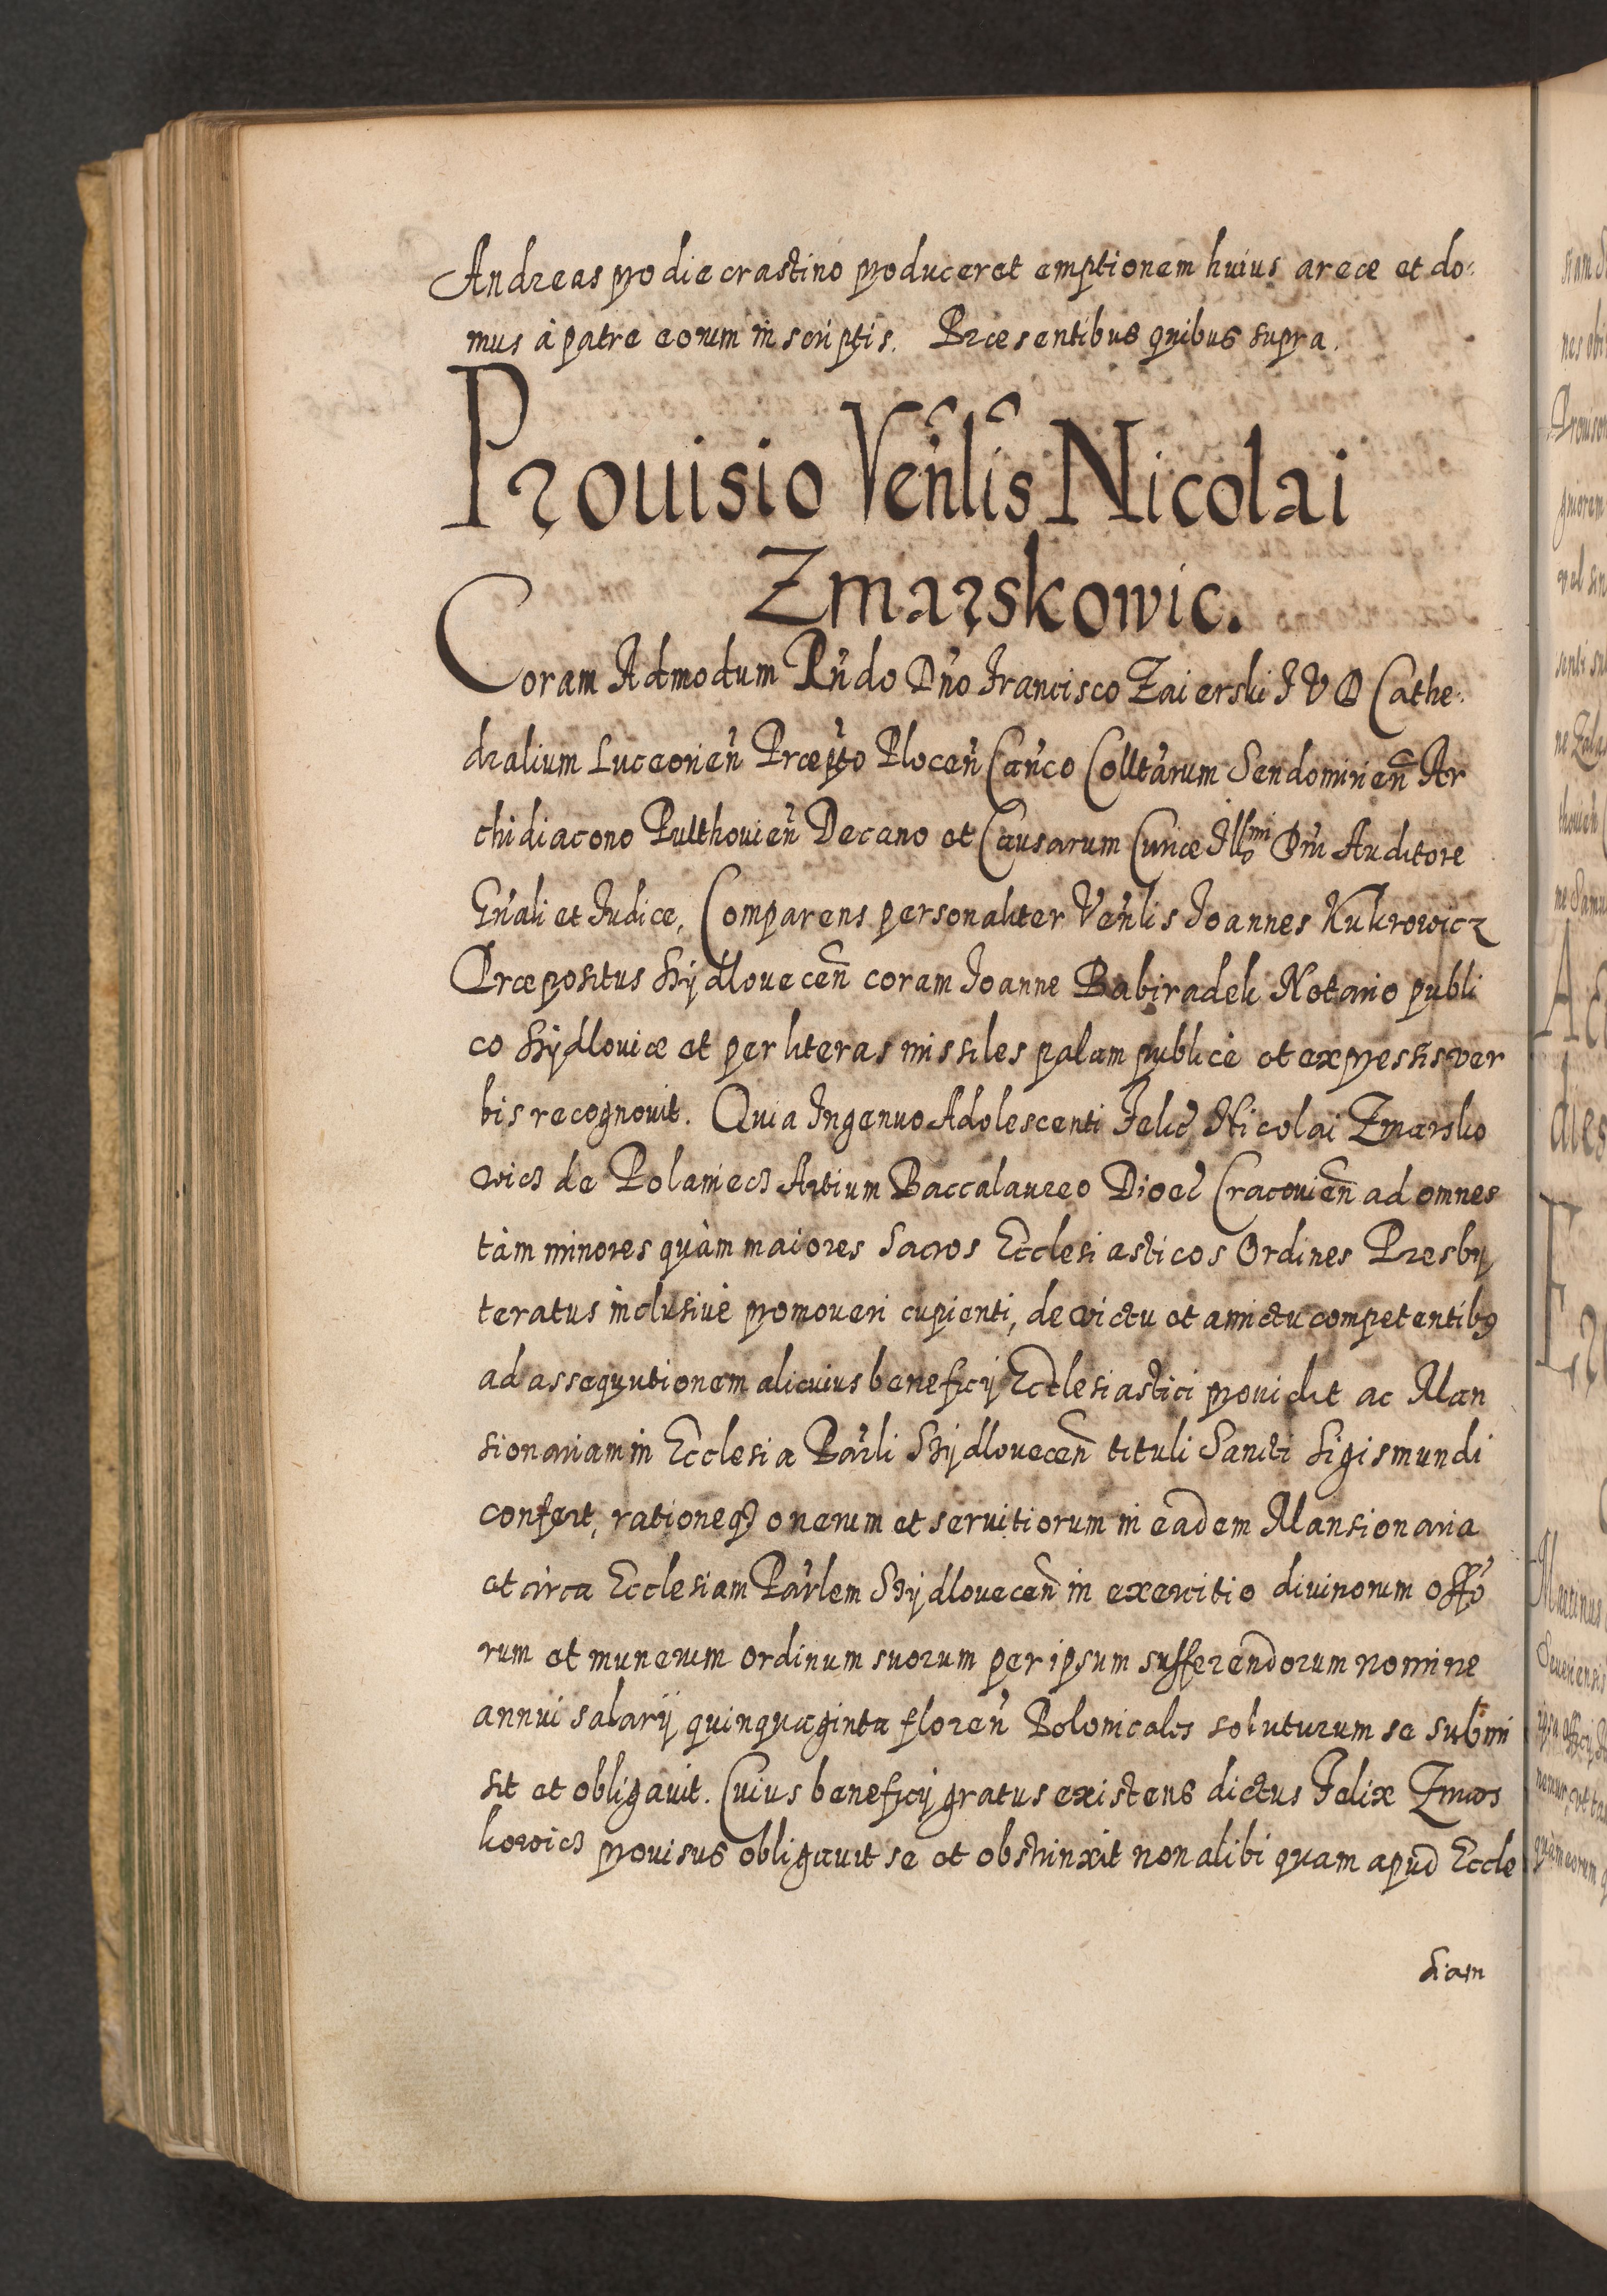 Andreas pro die crastino produceret emptionem huius areæ et do:
mus à patre eorum in scriptis. Præsentibus quibus supra.
Prouisio Ven̄lis Nicolai
Zmarskowic.
Coram Admodum Rn̄do Dn̄o Francisco Zaierski I V D Cathe:
dralium Luceorien̄ Præp̄to Plocen̄ Can̄co Colltārum Sendomirien̄ Ar
chidiacono Pulthouien̄ Decano et Causarum Curiæ Illmi Dn̄i Auditore
Gn̄ali et Iudice, Comparens personaliter Ven̄lis Ioannes Kukrowicz
Præpositus Szÿdlouecen̄ coram Ioanne Babiradek Notario publi
co Szÿdlouiæ et per literas missiles palam publicè et expressis ver
bis recognouit. Quia Ingenuo Adolescenti Felici Nicolai Zmarsko
wicz de Polaniecz Artium Baccalaureo Dioec̄ Cracouien̄ ad omnes
tàm minores quàm maiores Sacros Ecclesiasticos Ordines Presby
teratus inclusiuè promoueri cupienti, de victu et amictu competentibꝯ
ad assequutionem alicuius beneficij Ecclesiastici prouidit ac Man
sionariam in Ecclesia Par̄li Szÿdlouecen̄ tituli Sancti Sigismundi
confert, rationeqꝫ onerum et seruitiorum in eadem Mansionaria
et circa Ecclesiam Par̄lem Szÿdlouecen̄ in exercitio diuinorum offō
rum et munerum ordinum suorum per ipsum sufferendorum nomine
annui salarij quinquaginta floren̄ Polonicales soluturum se submi
sit et obligauit. Cuius beneficij gratus existens dictus Felix Zmars
kowicz prouisus obligauit se et obstrinxit non alibi quam apud Eccle
siam